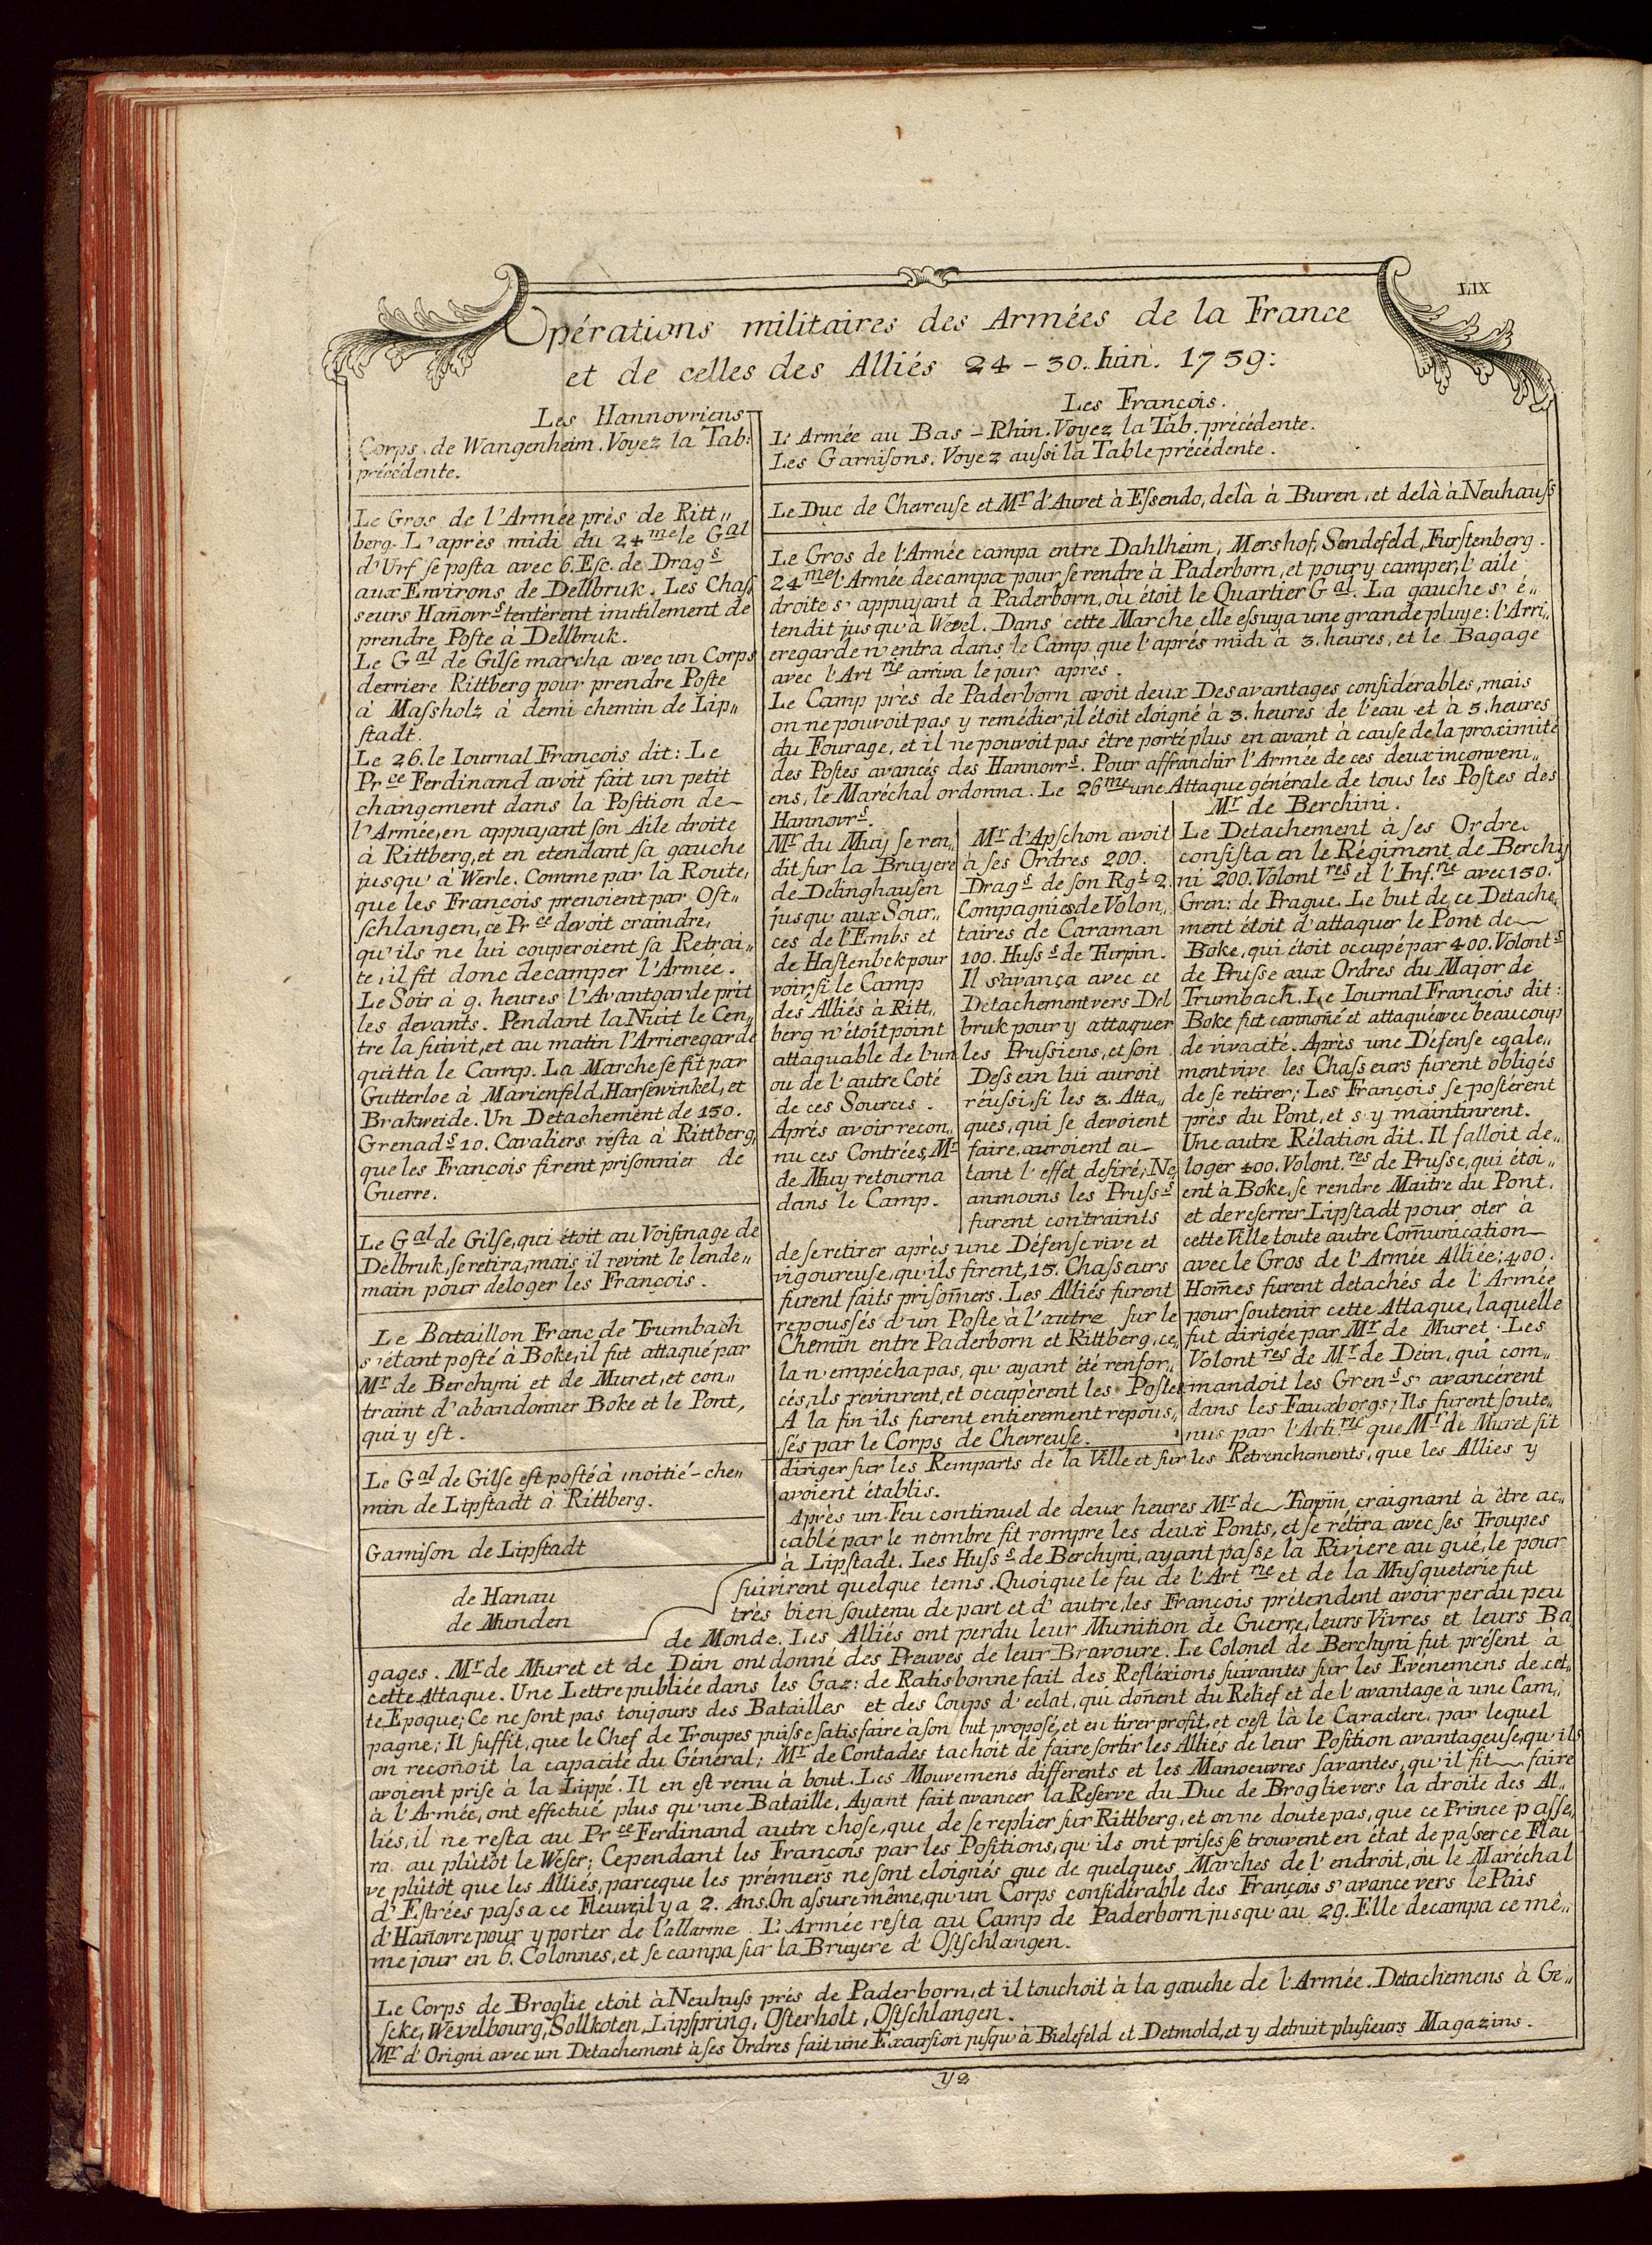 LIX
Opérations militaires des Armées de la France
et de celles des Alliés 24 - 30. Iuin. 1759:
Les Hannovriens
Corps de Wangenheim. Voyez la Tab:
précédente.
Le Gros de l'Armée près de Ritt„
berg. L'après midi du 24me le Gal
d'Urf se posta avec 6. Esc. de Drags
aux Environs de Dellbruk. Les Chas„
seurs Hañovrs tentèrent inutilement de
prendre Poste à Dellbruk.
Le Gal de Gilse marcha avec un Corps
derriere Rittberg pour prendre Poste
à Massholz à demi chemin de Lip„
stadt.
Le 26. le Iournal François dit: Le
Prce Ferdinand avoit fait un petit
changement dans la Position de
l'Armée, en appuyant son Aile droite
à Rittberg, et en etendant sa gauche
jusqu'à Werle. Comme par la Route,
que les François prenoient par Ost„
schlangen, ce Prce devoit craindre,
qu'ils ne lui couperoient sa Retrai„
te, il fit donc decamper l'Armée.
Le Soir à 9. heures l'Avantgarde prit
les devants. Pendant la Nuit le Cen„
tre la suivit, et au matin l'Arrieregarde
quitta le Camp. La Marche se fit par
Gutterloe à Marienfeld, Harsewinkel, et
Brakweide. Un Detachement de 150.
Grenads 10. Cavaliers resta à Rittberg,
que les François firent prisonnier de
Guerre.
Le Gal de Gilse, qui étoit au Voisinage de
Delbruk, se retira, mais il revint le lende„
main pour deloger les François.
Le Bataillon Franc de Trumbach
s'étant posté à Boke, il fut attaqué par
Mr de Berchyni et de Muret, et con„
traint d'abandonner Boke et le Pont,
qui y est.
Le Gal de Gilse est posté à moitié-che„
min de Lipstadt à Rittberg.
Garnison de Lipstadt
de Hanau
de Munden
Les François.
L'Armée au Bas-Rhin. Voyez la Tab. précédente.
Les Garnisons. Voyez aussi la Table précédente.
Le Duc de Chevreuse et Mr d'Auret à Essendo, delà à Buren, et delà à Neuhauss
Le Gros de l'Armée campa entre Dahlheim, Mershof, Sendefeld, Furstenberg.
24me l'Armée decampa pour se rendre à Paderborn, et pour y camper, l'aile
droite s'appuyant à Paderborn, où étoit le Quartier Gal. La gauche s'é„
tendit jusqu'à Wevel. Dans cette Marche elle essuya une grande pluye: l'Arri„
eregarde n'entra dans le Camp que l'après midi à 3. heures, et le Bagage
avec l'Artrie arriva le jour après.
Le Camp près de Paderborn avoit deux Desavantages considérables, mais
on ne pouvoit pas y remédier, il étoit eloigné à 3. heures de l'eau et à 5. heures
du Fourage, et il ne pouvoit pas être porté plus en avant à cause de la proximité
des Postes avancés des Hannovrs. Pour affranchir l'Armée de ces deux inconveni„
ens, le Maréchal ordonna. Le 26me une Attaque générale de tous les Postes des
Hannovrs.
Mr du Muy se ren„
dit sur la Bruyere
de Delinghausen
jusqu'aux Sour„
ces de l'Embs et
de Hastenbek pour
voir, si le Camp
des Alliés à Ritt„
berg n'étoit point
attaquable de l'un
ou de l'autre Coté
de ces Sources.
Aprés avoir recon„
nu ces Contrées, Mr
de Muy retourna
dans le Camp.
Mr d'Apschon avoit
à ses Ordres 200.
Drags de son Rgt 2.
Compagnies de Volon„
taires de Caraman
100. Husss de Turpin.
Il s'avança avec ce
Detachement vers Del
bruk pour y attaquer
les Prussiens, et son
Dessein lui auroit
réussi, si les 3. Atta„
ques, qui se devoient
faire, auroient eu
tant l'effet desiré; Ne„
anmoins les Prusss
furent contraints
de se retirer après une Défense vive et
vigoureuse, qu'ils firent, 15. Chasseurs
furent faits prisoñiers. Les Alliés furent
repoussés d'un Poste à l'autre sur le
Chemin entre Paderborn et Rittberg, ce„
la n'empécha pas, qu'ayant été renfor„
cés, ils revinrent, et occupèrent les Postes
A la fin ils furent entierement repous„
sés par le Corps de Chevreuse.
Mr de Berchini.
Le Detachement à ses Ordre
consista en le Régiment de Berchy
ni 200. Volontres et l'Inf.rie avec 150.
Gren: de Prague. Le but de ce Detache„
ment étoit d'attaquer le Pont de
Boke, qui étoit occupé par 400. Volonts
de Prusse aux Ordres du Major de
Trumbach. Le Iournal François dit:
Boke fut cannoñé et attaqué avec beaucoup
de vivacité. Après une Défense egale„
ment vive les Chasseurs furent obligés
de se retirer; Les François se postérent
près du Pont, et s'y maintinrent.
Une autre Rélation dit. Il falloit de„
loger 400. Volont.res de Prusse, qui étoi„
ent à Boke, se rendre Maitre du Pont,
et de reserrer Lipstadt pour oter à
cette Ville toute autre Com̃unication
avec le Gros de l'Armée Alliée; 400.
Hom̃es furent detachés de l'Armée
pour soutenir cette Attaque, laquelle
fut dirigée par Mr de Muret. Les
Volontres de Mr de Dein, qui com„
mandoit les Grens s'avancérent
dans les Fauxborgs; Ils furent soute„
nus par l'Arti.rie que Mr de Muret fit
diriger sur les Remparts de la Ville et sur les Retrenchements, que les Allies y
avoient établis.
Après un Feu continuel de deux heures Mr de Turpin craignant à être ac„
cablé par le nombre fit rompre les deux Ponts, et se rétira avec ses Troupes
à Lipstadt. Les Husss de Berchyni, ayant passe la Riviere au gué, le pour
suivirent quelque tems. Quoique le feu de l'Artrie et de la Musqueterie fut
très bien soutenu de part et d'autre, les François prétendent avoir perdu peu
de Monde. Les Alliés ont perdu leur Munition de Guerre, leurs Vivres et leurs Ba„
gages. Mr de Muret et de Dein ont donné des Preuves de leur Bravoure. Le Colonel de Berchyni fut présent à
cette Attaque. Une Lettre publiée dans les Gaz: de Ratisbonne fait des Refléxions suivantes sur les Evénemens de cet„
te Epoque; Ce ne sont pas toujours des Batailles et des Coups d'eclat, qui doñent du Relief et de l'avantage à une Cam„
pagne; Il suffit, que le Chef de Troupes puisse satisfaire à son but proposé, et en tirer profit, et c'est là le Caractere, par lequel
on recoñoit la capacité du Général; Mr de Contades tachoit de faire sortir les Alliés de leur Position avantageuse, qu'ils
avoient prise à la Lippe. Il en est venu à bout. Les Mouvemens différents et les Manoeuvres savantes, qu'il fit faire
à l'Armée, ont effectué plus qu'une Bataille. Ayant fait avancer la Réserve du Duc de Broglie vers la droite des Al„
liés, il ne resta au Prce Ferdinand autre chose, que de se replier sur Rittberg, et on ne doute pas, que ce Prince passe„
ra au plûtôt le Weser; Cependant les François par les Positions, qu'ils ont prises se trouvent en état de passer ce Fleu
ve plûtôt que les Alliés, parceque les prémiers ne sont eloignés que de quelques Marches de l'endroit, où le Maréchal
d'Estrées passa ce Fleuve il y a 2. Ans. On assure même, qu'un Corps considérable des François s'avance vers le Païs
d'Hañovre pour y porter de l'allarme. L'Armée resta au Camp de Paderborn jusqu'au 29. Elle decampa ce mê„
me jour en 6. Colonnes, et se campa sur la Bruyere d'Ostschlangen.
Le Corps de Broglie etoit à Neuhuss près de Paderborn, et il touchoit à la gauche de l'Armée. Detachemens à Ge„
seke, Wevelbourg, Sollkoten, Lipspring, Osterholt, Ostschlangen.
Mr d'Origni avec un Detachement à ses Ordres fait une Excursion jusqu'à Bielefeld et Detmold, et y detruit plusieurs Magazins.
y2